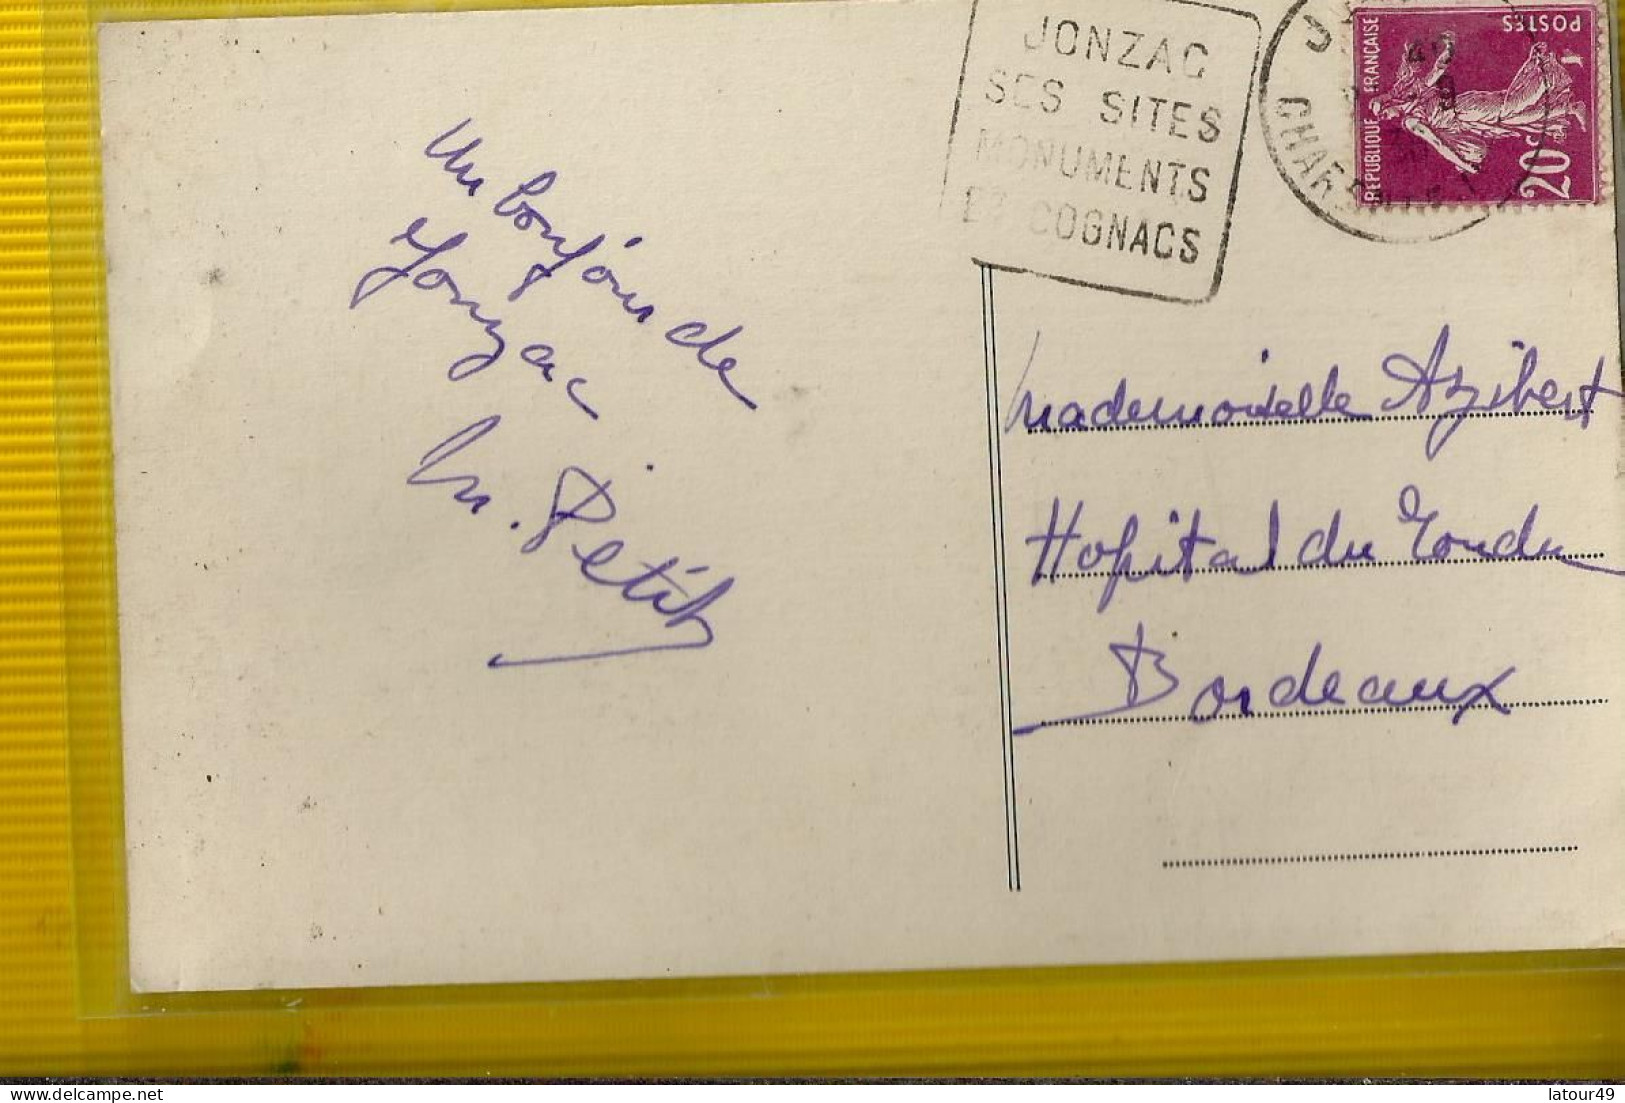 JONZAC
SES SITES
MONUMENTS
ET COGNACS
REPUBLIQUE FRANÇAISE
POSTES
20c
Un bonjour de
Jonzac
M. Petit
Mademoiselle Azibert
Hopital du Tondu
Bordeaux
latour49